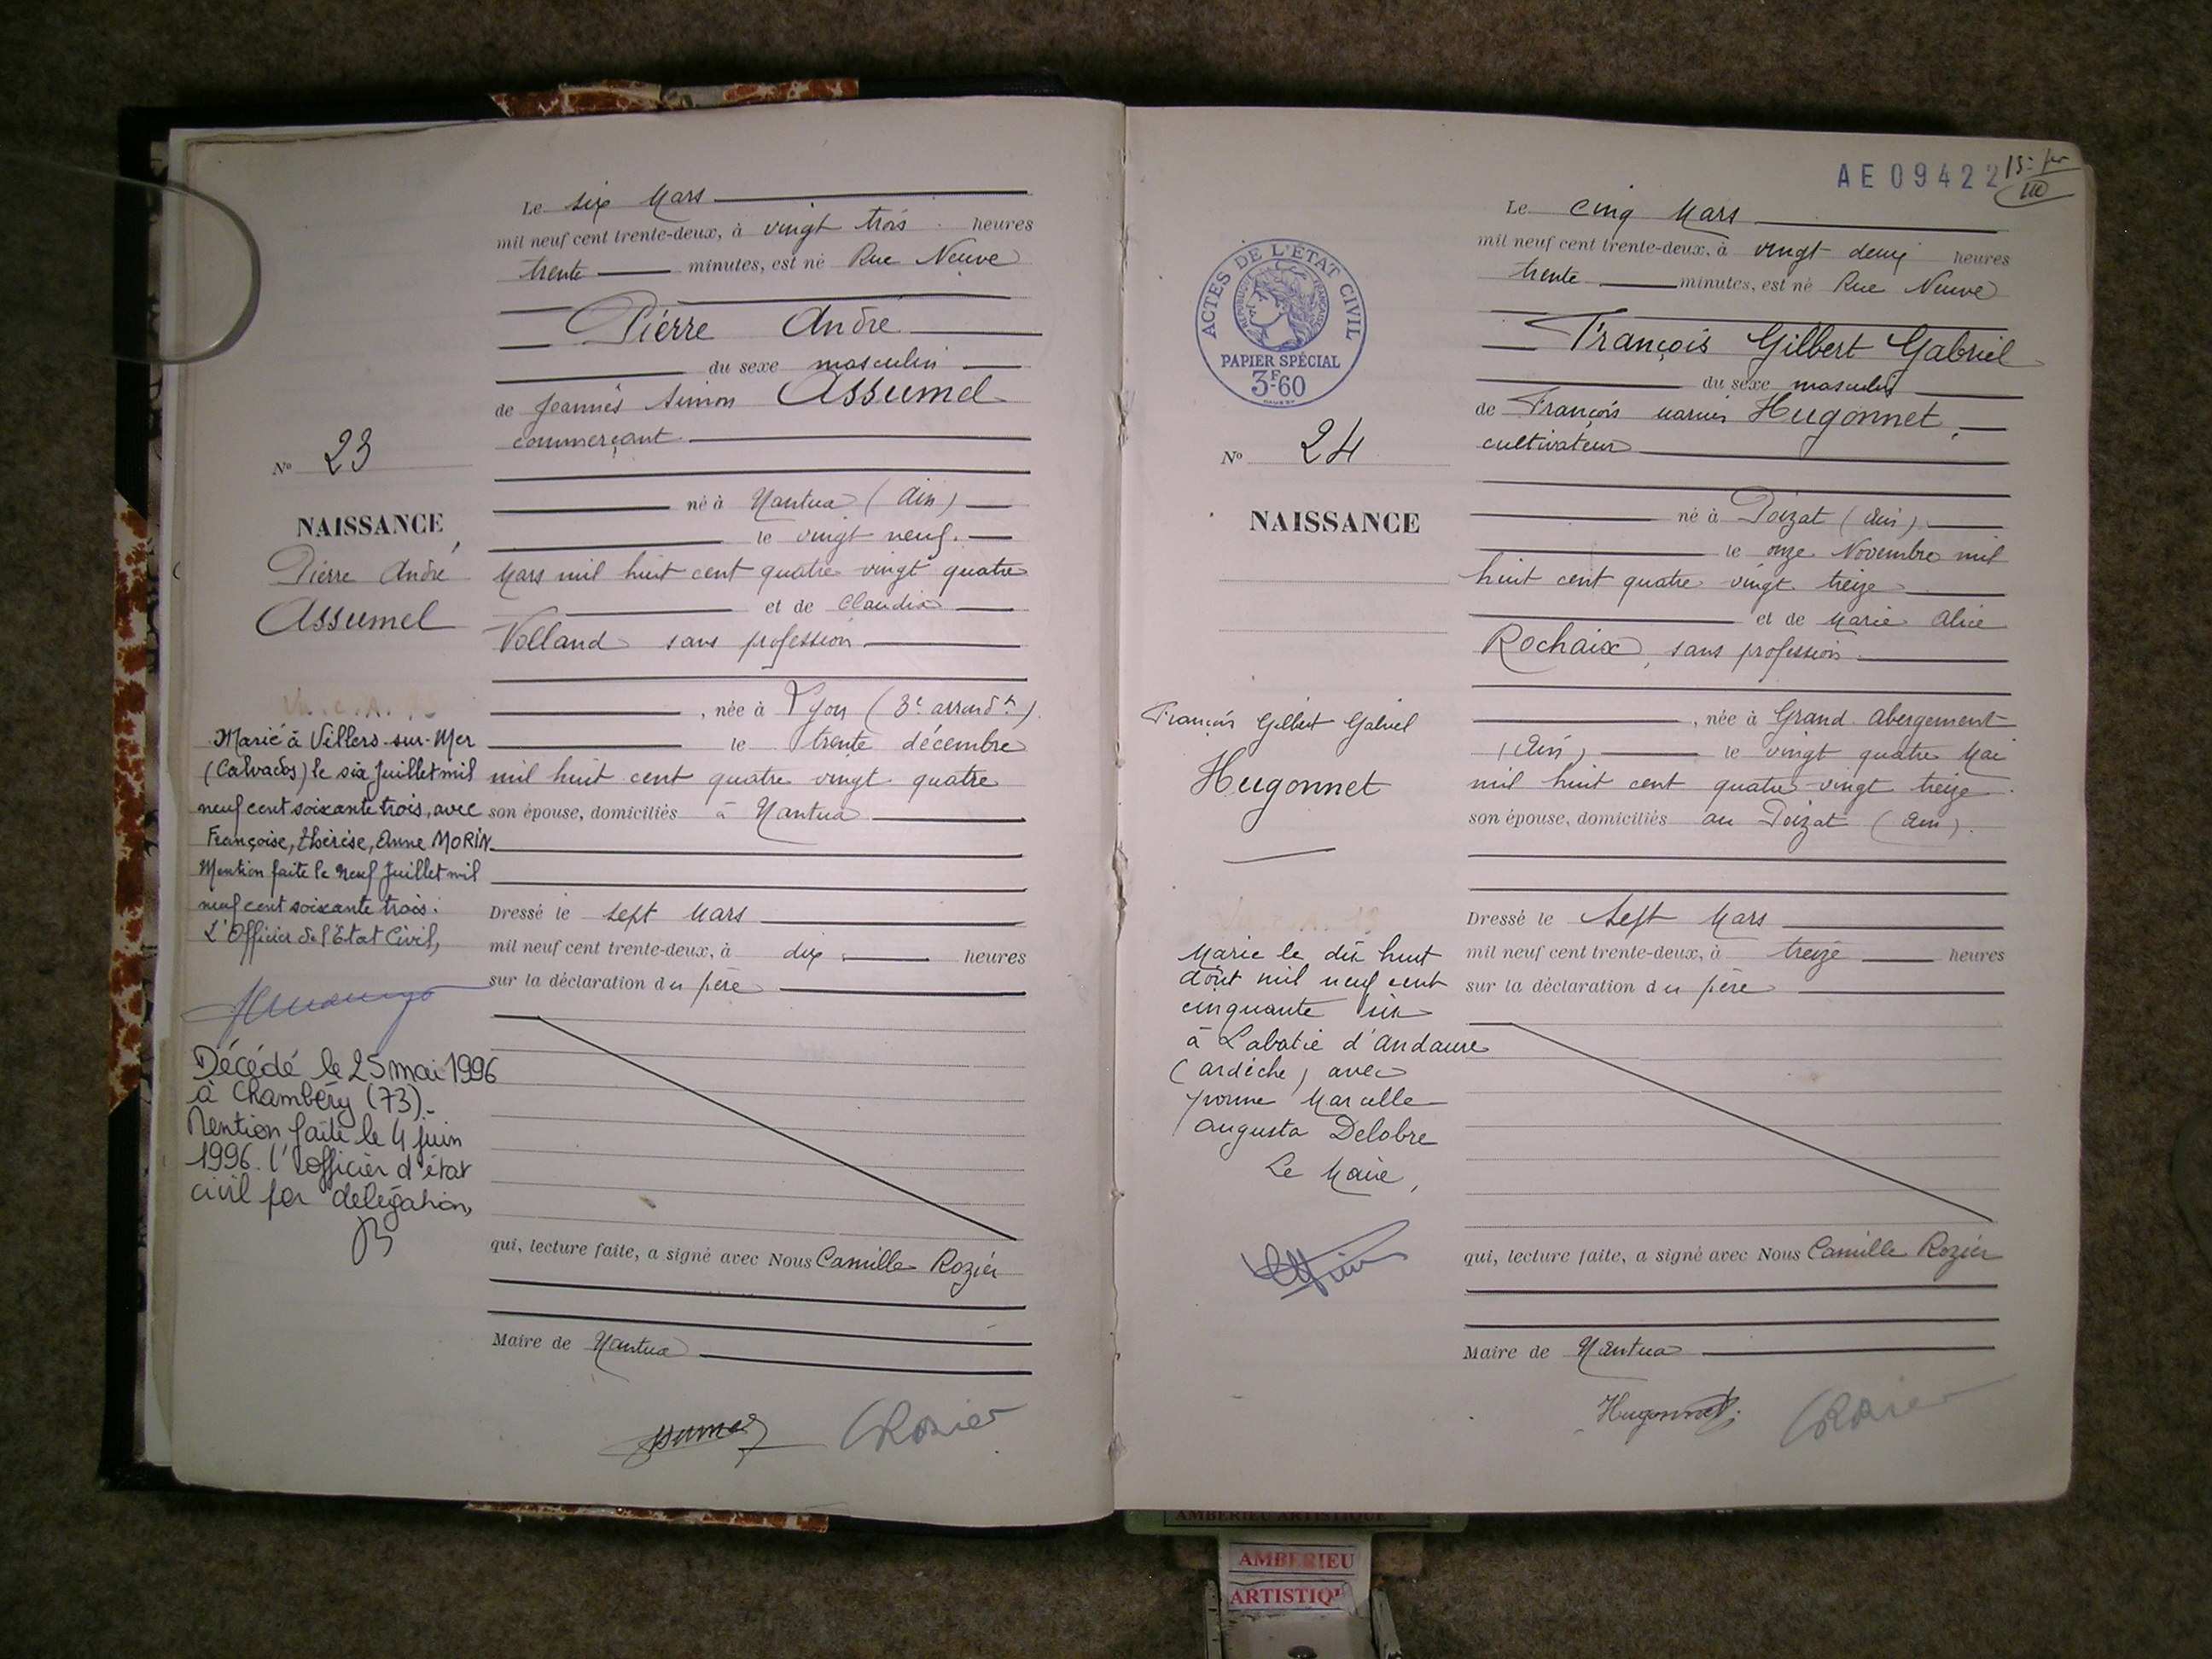 Le six Mars
mil neuf cent trente-deux, à vingt trois heures
trente minutes, est né Rue Neuve
Pierre André
du sexe masculin
de Jeannès Simon Assumel
commerçant
né à Nantua (Ain)
le vingt neuf
Mars mil huit cent quatre vingt quatre
et de Claudia
Volland sans profession
, née à Lyon (3e arrondt)
le trente décembre
mil huit cent quatre vingt quatre
son épouse, domiciliés à Nantua
Dressé le sept Mars
mil neuf cent trente-deux, à dix heures
sur la déclaration du père
qui, lecture faite, a signé avec Nous Camille Rozier
Maire de Nantua
CRozier
No 23
NAISSANCE
Pierre André
Assumel
Marié à Villers-sur-Mer
(Calvados) le six Juillet mil
neuf cent soixante trois, avec
Françoise, thérèse, Anne MORIN
Mention faite le neuf Juillet mil
neuf cent soixante trois.
L'Officier de l'Etat Civil,
Décédé le 25 mai 1996
à Chambéry (73).
Mention faite le 4 juin
1996. l'officier d'état
civil par délégation,
AE 09422
Le cinq Mars
mil neuf cent trente-deux, à vingt deux heures
trente minutes, est né Rue Neuve
François Gilbert Gabriel
du sexe masculin
de François Hugonnet,
cultivateur
né à Poizat (Ain)
le onze Novembre mil
huit cent quatre vingt treize
et de Marie Alice
Rochaix, sans profession
, née à Grand Abergement
(Ain) le vingt quatre Mai
mil huit cent quatre-vingt treize
son épouse, domiciliés au Poizat (Ain).
Dressé le Sept Mars
mil neuf cent trente-deux, à treize heures
sur la déclaration du père
qui, lecture faite, a signé avec Nous Camille Rozier
Maire de Nantua
Hugonnet
CRozier
ACTES DE L'ÉTAT CIVIL
RÉPUBLIQUE FRANÇAISE
PAPIER SPÉCIAL
3F60
No 24
NAISSANCE
François Gilbert Gabriel
Hugonnet
Marié le dix huit
août mil neuf cent
cinquante six
à Labatie d'Andaure
(ardèche) avec
Yvonne Marcelle
Augusta Delobre
Le Maire,
AMBERIEU ARTISTIQUE
AMBERIEU
ARTISTIQU